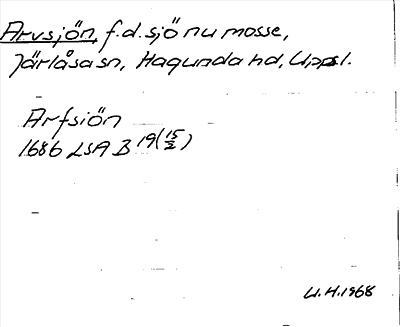 Arvsjön, f.d. sjö nu mosse,
Järlåsa sn, Hagunda hd, Uppsl.
Arfsiön
1686 LSA B 19(15/2)
U.H. 1968